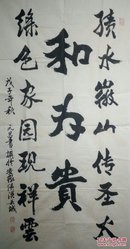 绩水徽山传圣火
和为貴
绿色家园现祥雲
戊子年秋